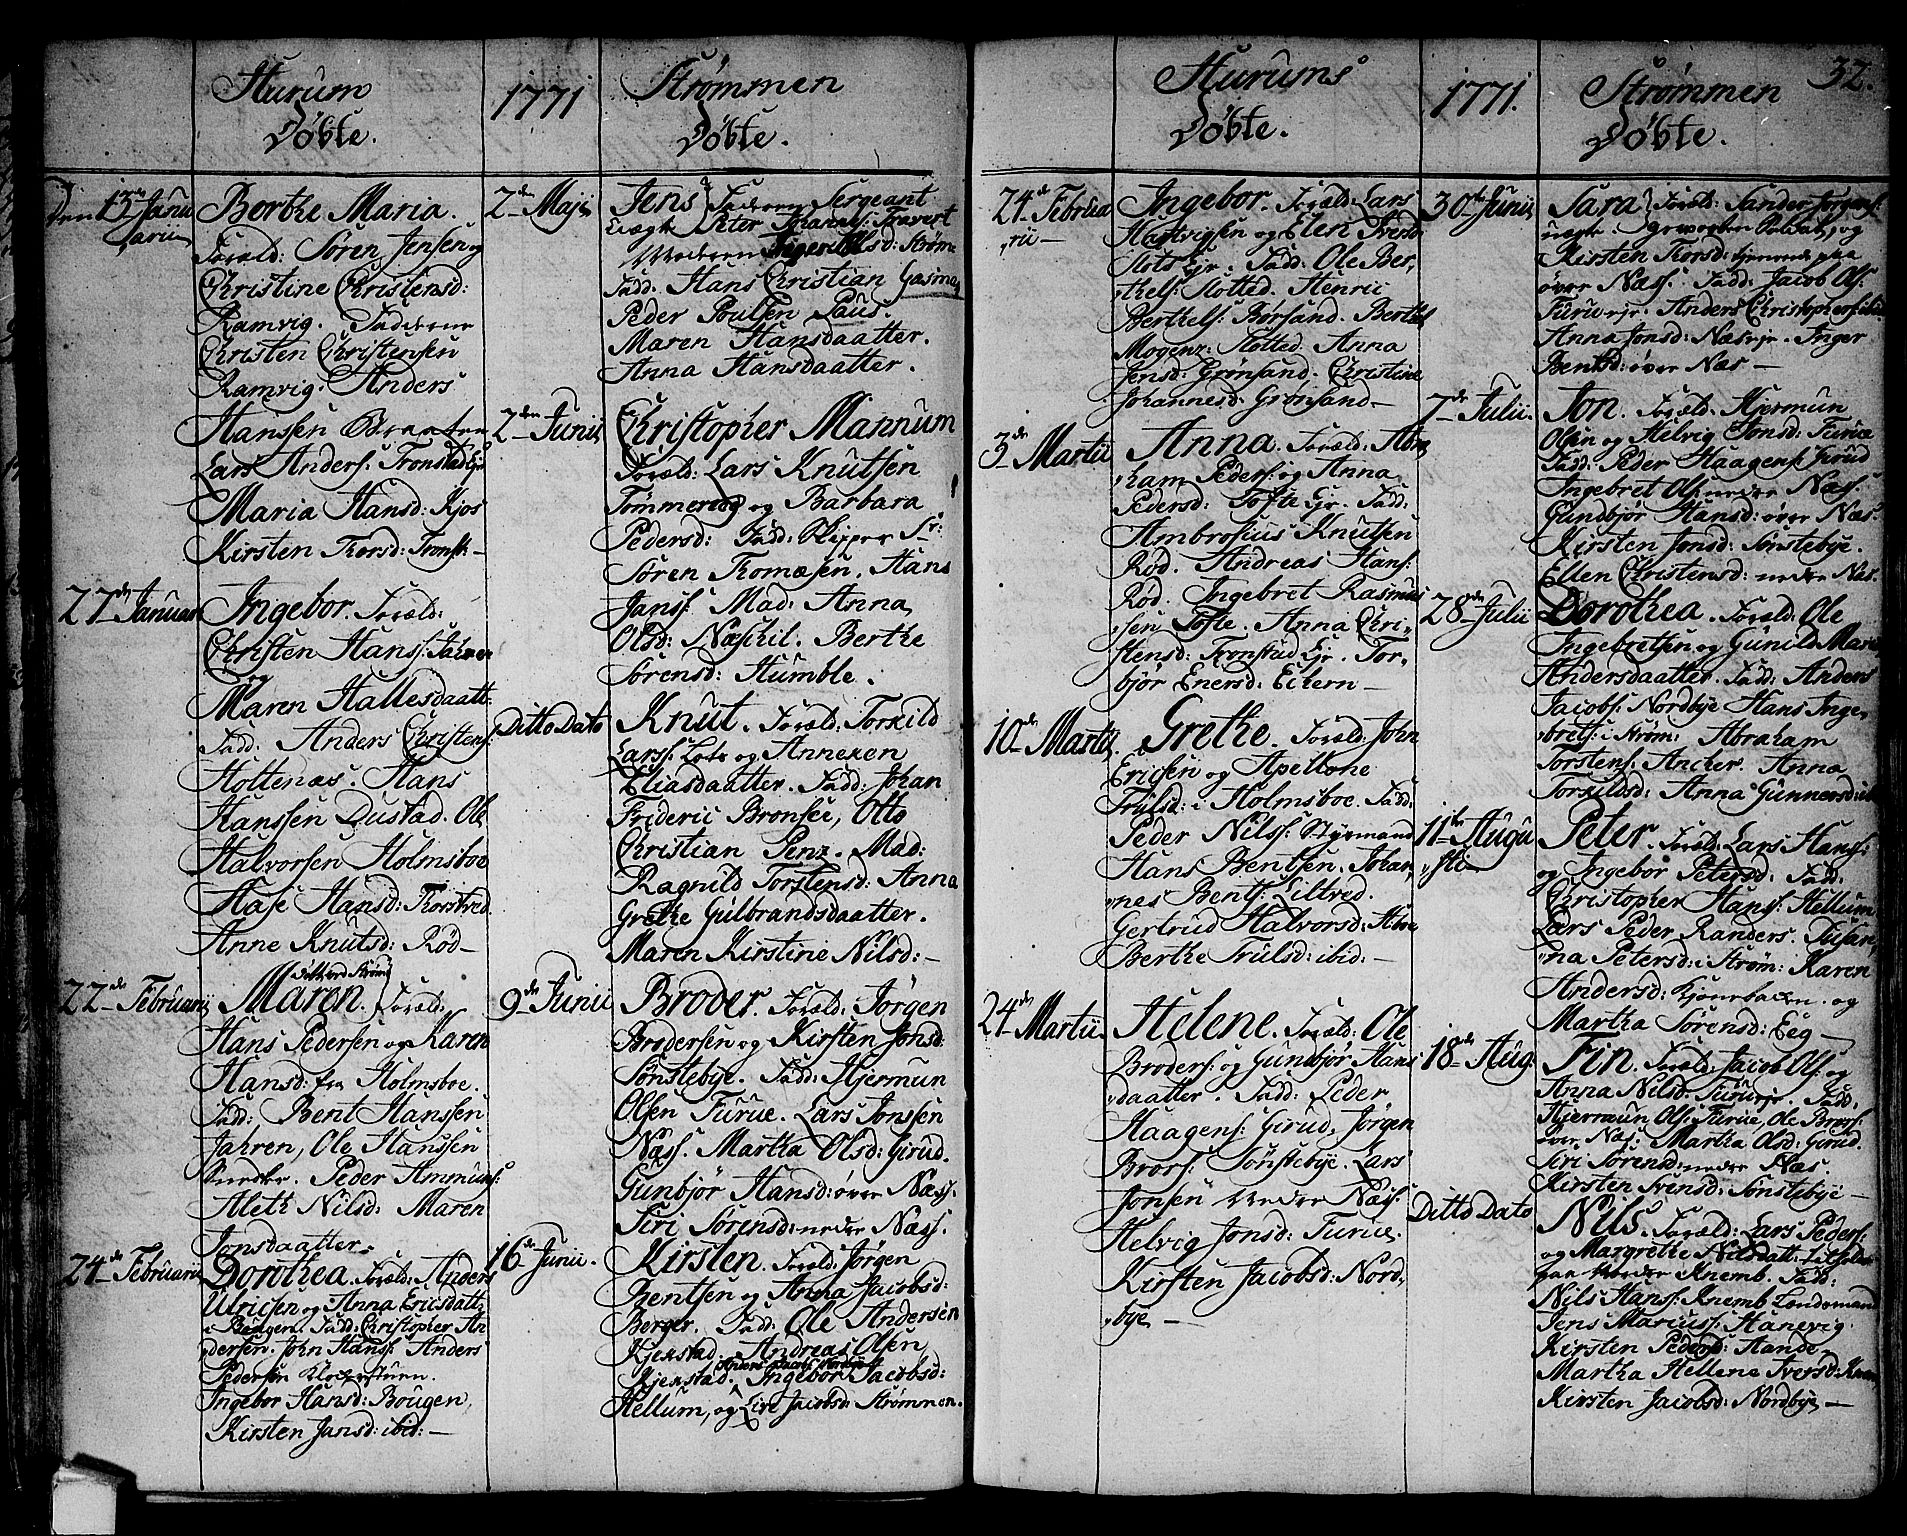 Hurum
Døbte.
den 13de Janu
arii
Berthe Maria.
Foræld: Søren Jensen og
Christine Christensd:
Ramvig. Fadderne
Christen Christensen
Ramvig. Anders
Hanssen Braaten
Lars Anders: Tronstad Ejr
Maria Hansd: Kjos
Kirsten Thorsd: Tronst:
27de Januar
Ingebor. Foræld:
Christen Hanss: Jahren
og
Maren Hallesdaatt:
Fadd: Anders Christens:
Holtenæs. Hans
Hanssen Dustad. Ole
Halvorsen Holmsboe
Hansd: Thorstved
Anne Knutsd: Rød
22de Februarii
Maren. Foræld:
Hans Pedersen og Karen
Hansd: fra Holmsboe.
Fadd: Bent Hanssen
Jahren, Ole Hanssen
Peder Ammuns:
Aleth Nilsd: Maren
Jonsdaatter.
24de Februarii
Dorothea. Foræld: Anders
Ulricsen og Anna Ericsdatt:
i Bougen. Fadd: Christopher An
dersen. John Hans: Anders
Pedersen
Ingebor Hansd: Bougen,
Kirsten Jansd: ibid:
1771
Strømmen
Døbte.
2den Maji
Jens Faderen Sergeant
Uægte Peter
Moderen Strøm:
Fadd: Hans Christian Gasman
Peder Poulsen Paus.
Maren Hansdaatter.
Anna Hansdaatter.
2den Junii
Christopher Mannum
Foræld: Lars Knutsen
Tømmeraas og Barbara
Pedersd: Fadd: Skipper Sr:
Søren Thomæsen. Hans
Janss: Mad: Anna
Olsd: Næschil. Berthe
Sørensd: Humble.
Ditto Dato
Knut. Foræld: Torkild
Larss: Lots og Anneken
Eliasdaatter. Fadd: Johan
Frideric Bronser, Otto
Christian Penz. Mad:
Ragnild Torstensd: Anna
Grethe Gulbrandsdaatter.
Maren Kirstine Nilsd:
9de Junii
Broder. Foræld: Jørgen
Brodersen og Kirsten Jonsd:
Sønstebye. Fadd: Hjermun
Olsen Furue. Lars Jonsen
Næss. Martha Olsd: Girud.
Gunbjør Hansd: øvre Næss.
Siri Sørensd: nedre Næss.
16de Junii.
Kirsten. Foræld: Jørgen
Bentsen og Anna Jacobsd:
Berger. Fadd: Ole Andersen
Kjekstad. Andreas Olsen
Anders Jacobs: Nordbye
Kjekstad. Ingebor Jacobsd:
Hellum, og Live Jacobsd: Strømmen.
Hurums
Døbte.
24de Februa
rii
Ingebor. Foræld: Lars
Hartvigsen og Elen Iversd:
Slots Ejr. Fadd: Ole Ber,
thels: Slotted. Henric
Berthels: Børsand. Berthe
Mogenz: Slotted. Anna
Jensd: Grønsand. Christine
Johannesd: Grønsand
3de Martii
Anna. Foræld: Abra
ham Peders: og Anna
Pedersd: Tofte Ejr. Fadd:
Ambrosius Knutsen
Rød. Andreas Hans:
Rød. Ingebret Rasmus
sen Tofte. Anna Chri
stensd: Tronstad Ejr. Tor,
bjør Enersd: Ekern
10de Martii
Grethe. Foræld: John
Ericsen og Apellone
Trulsd: i Holmsboe. Fadd:
Peder Nilss: Styrmand
Hans Bentsen. Johan
nes Bents: Siltved.
Gertrud Halvorsd: ibid
Berthe Trulsd: ibid:
24de Martii
Helene. Foræld: Ole
Broders: og Gunbjør Hans
daatter. Fadd: Peder
Haagens: Girud, Jørgen
Brors: Sønstebye. Lars
Jonsen nedre Næss:
Helvig Jonsd: Furue.
Kirsten Jacobsd: Nord,
bye
1771.
Strømmen
Døbte.
32.
30te Junii
Sara Foræld: Sander Jørgens:
uægte: Soldat, og
Kirsten Thorsd: hjemme paa
øvre Næss. Fadd: Jacob Ols:
Furu ejr. Anders Christophers: ibid:
Anna Jonsd: Næs ejr. Inger
Bentsd: øvre Næs
7de Julii
Jon. Foræld: Hjermun
Olsen og Helvig Jonsd: Furue
Fadd: Peder Haagens: Girud
Ingebret Ols: nedre Næss:
Gundbjør Hansd: øvre Næs.
Kirsten Jonsd: Sønstebye.
Ellen Christensd: nedre Næs.
28de Julii
Dorothea. Foræld: Ole
Ingebretsen og Gunild Marie
Andersdaatter. Fadd: Anders
Jacobs: Nordbye Hans Inge
brets: i Strøm: Abraham
Torstens: Ancher. Anna
Torkildsd: Anna Gunnersd: ibid
11te Augu
sti
Peter. Foræld: Lars Hans:
og Ingebor Petersd: Fadd:
Christopher Hans: Hellum
Lars Peder Randers. Susan,
na Petersd: i Strøm: Karen
Andersd: og
Martha Sørensd: Eeg
18de Aug:
Fin. Foræld: Jacob Ols: og
Anna Nilsd: Furu ejr. Fadd:
Hjermun Ols: Furue, Ole Brors:
øvre Næs: Martha Olsd: Girud.
Siri Sørensd: nedre Næs.
Kirsten Svensd: Sønstebye
Ditto Dato
Nils. Foræld: Lars Peders:
og Margrethe Nilsdatt:
paa Nordre Knemb. Fadd:
Nils Hans: Knemb Lendsmand
Jens Marius: Hanevig.
Kirsten Pedersd: Hande
Martha Hellene Iversd: Knem
Kirsten Jacobsd: Nordbye